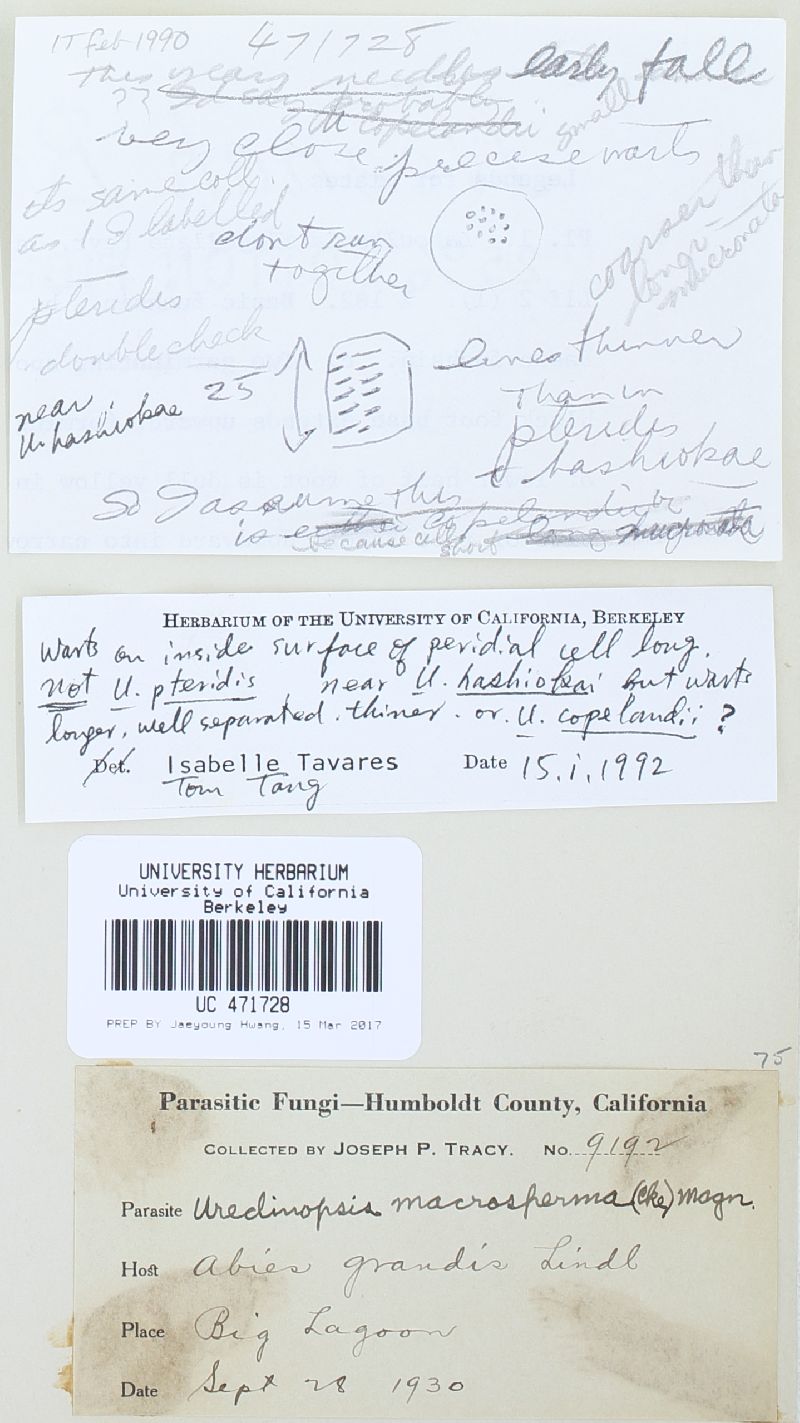 IT Feb 1990 471728
this years needles early fall
?? I'd say probably
U copelandii small
very close precise warts
its same coll.
as 1 I labelled
coarser than
longi-
mucronata
dont run
together
pteridis
double check
25
lines thinner
near
U. hashiokae
than in
pteridis
& hashiokae
So I assume this
is either copelandii or
because cells short
long mucronata
HERBARIUM OF THE UNIVERSITY OF CALIFORNIA, BERKELEY
Warts on inside surface of peridial cell long.
not U. pteridis, near U. hashiokai but warts
longer, well separated. thiner. or. U. copelandii ?
Det. Isabelle Tavares Date 15.i.1992
Tom Tang
UNIVERSITY HERBARIUM
University of California
Berkeley
UC 471728
PREP BY Jaeyoung Hwang, 15 Mar 2017
75
Parasitic Fungi—Humboldt County, California
COLLECTED BY JOSEPH P. TRACY. No. 9192
Parasite Uredinopsis macrosperma (Cke) Magn.
Host Abies grandis Lindl
Place Big Lagoon
Date Sept 28 1930